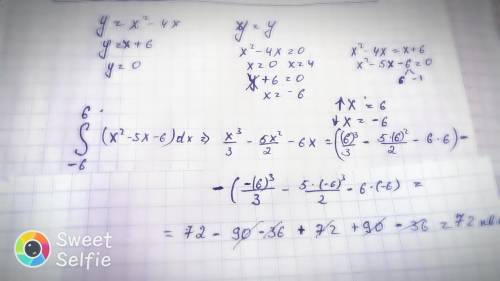 y = x² - 4x
y = x + 6
y = 0
y = y
x² - 4x = 0
x = 0 x = 4
x + 6 = 0
x = -6
x² - 4x = x + 6
x² - 5x - 6 = 0
6 -1
↑ x = 6
↓ x = -6
6
∫ (x² - 5x - 6) dx => x³/3 - 5x²/2 - 6x = ((6)³/3 - 5·(6)²/2 - 6·6) -
-6
- (-(6)³/3 - 5·(-6)³/2 - 6·(-6) =
= 72 - 90 - 36 + 72 + 90 - 36 = 72 кв.
Sweet
Selfie